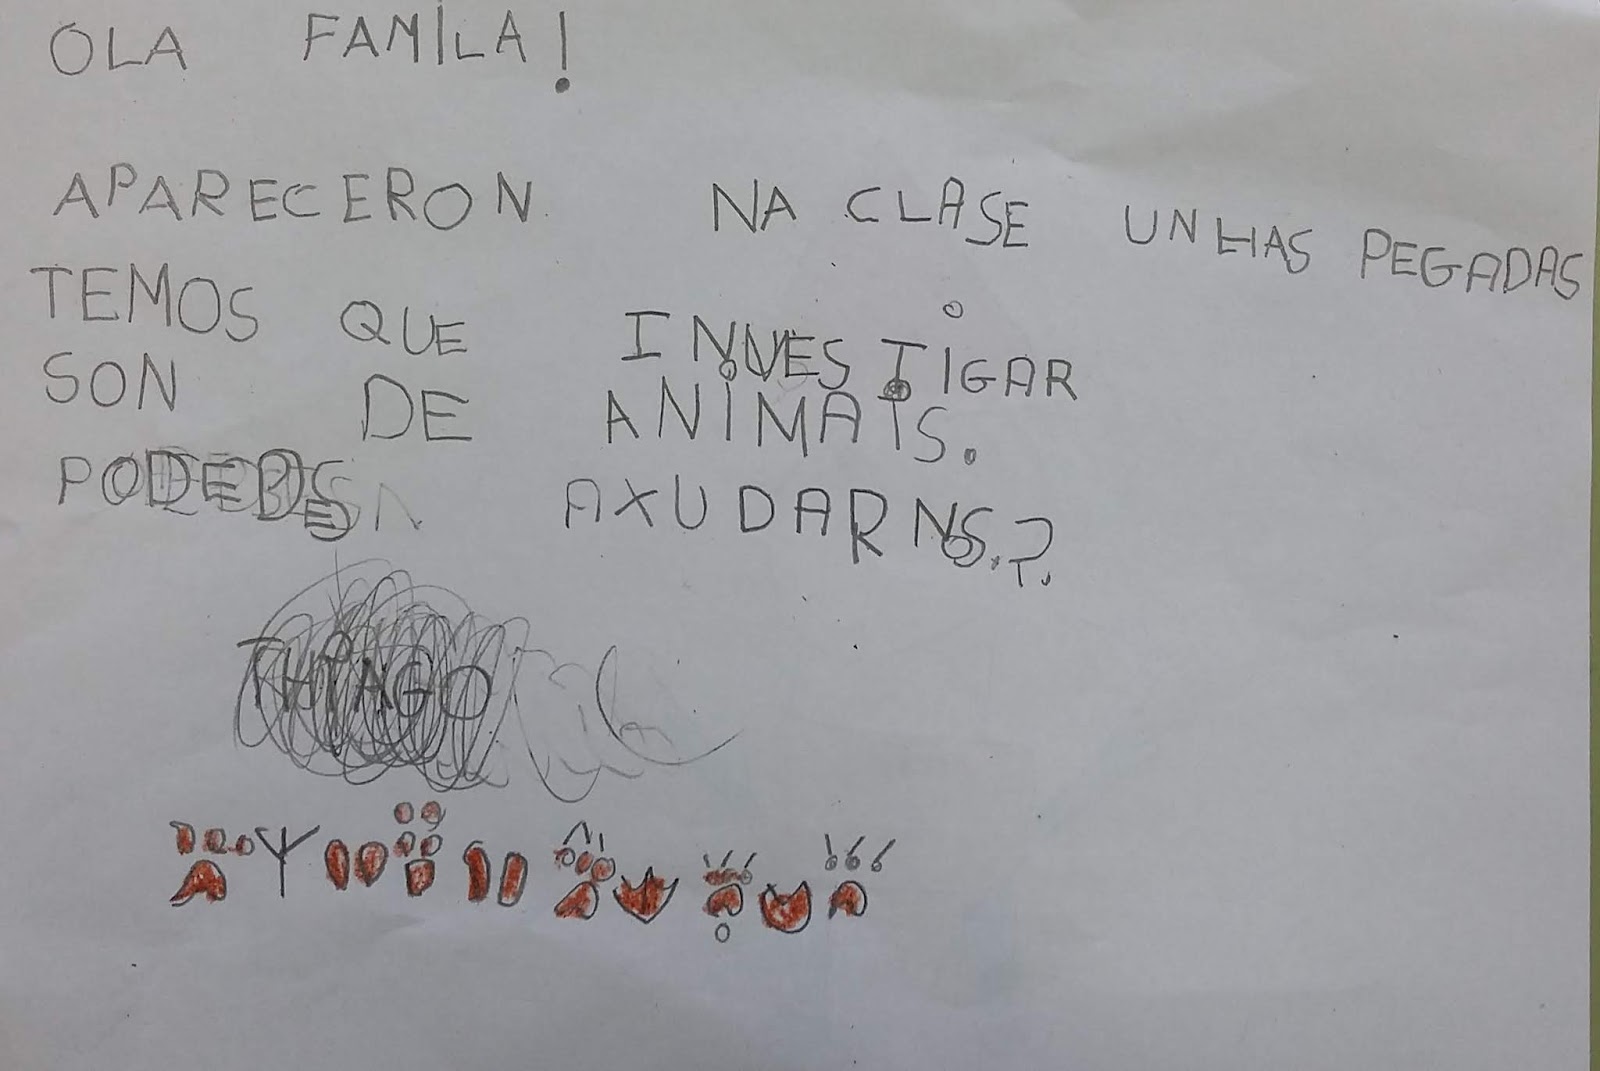 OLA FAMILA!
APARECERON NA CLASE UNHAS PEGADAS
TEMOS QUE INVESTIGAR
SON DE ANIMAIS.
PODEDES AXUDARNOS.?
THIAGO